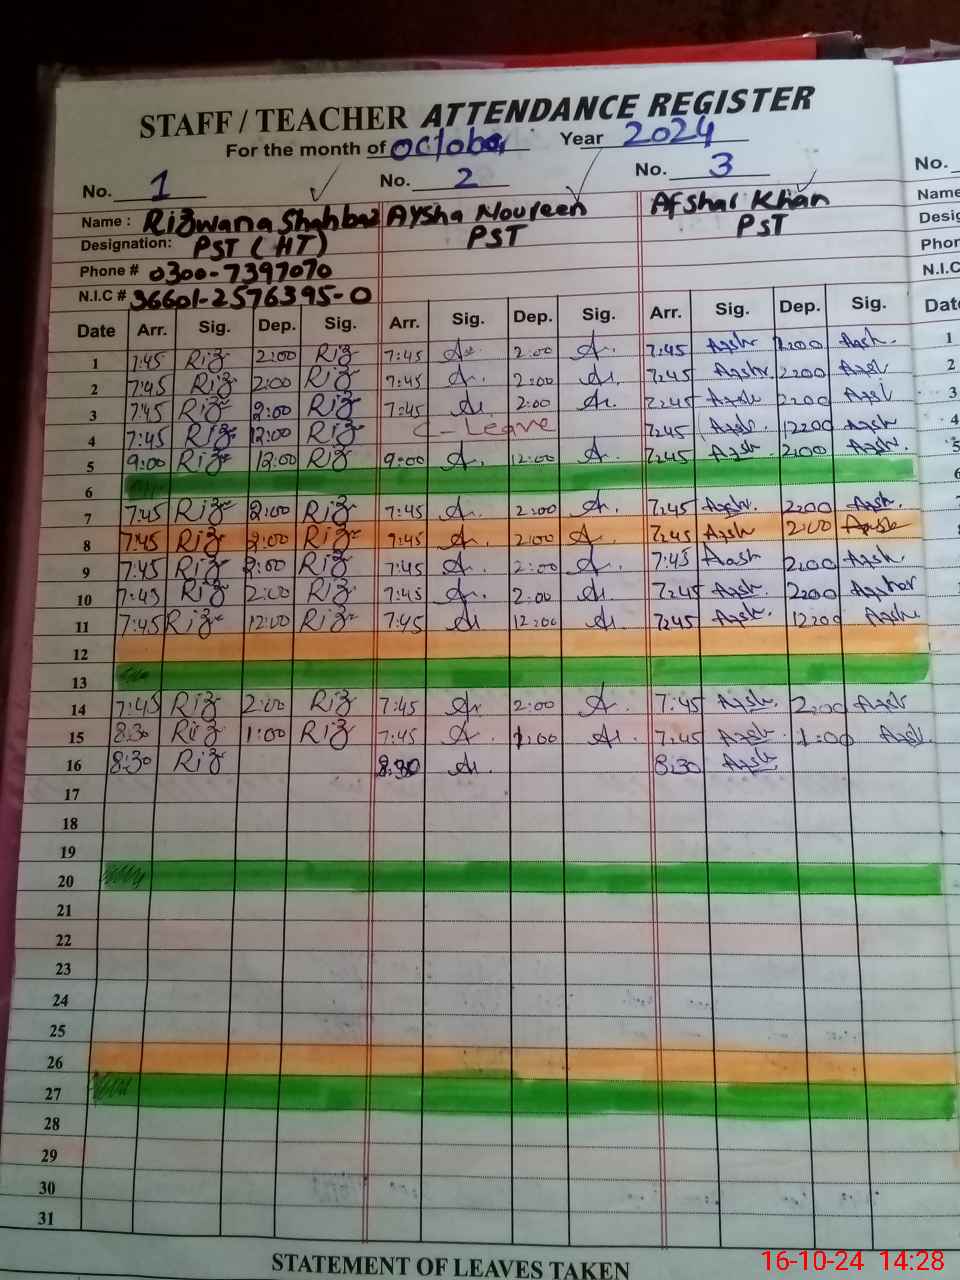 STAFF / TEACHER ATTENDANCE REGISTER
For the month of October Year 2024
No. 1 No. 2 No. 3 No.
Name : Rizwana Shahbaz Aysha Noureen Afshar Khan Name
Designation: PST (HT) PST PST Desig
Phone # 0300-7397070 Phon
N.I.C # 36601-2576395-0 N.I.C
Date Arr. Sig. Dep. Sig. Arr. Sig. Dep. Sig. Arr. Sig. Dep. Sig. Date
1 7:45 Riz 2:00 Riz 7:45 A. 2:00 A. 7:45 2:00 1
2 7:45 Riz 2:00 Riz 7:45 A. 2:00 A. 7:45 2:00 2
3 7:45 Riz 2:00 Riz 7:45 A. 2:00 A. 7:45 2:00 3
4 7:45 Riz 12:00 Riz C-Leave 7:45 12:00 4
5 9:00 Riz 12:00 Riz 9:00 A. 12:00 A. 7:45 2:00 5
6 6
7 7:45 Riz 2:00 Riz 7:45 A. 2:00 A. 7:45 2:00
8 7:45 Riz 2:00 Riz 7:45 A. 2:00 A. 7:45 2:00
9 7:45 Riz 2:00 Riz 7:45 A. 2:00 A. 7:45 2:00
10 7:45 Riz 2:00 Riz 7:45 A. 2:00 A. 7:45 2:00
11 7:45 Riz 12:00 Riz 7:45 A. 12:00 A. 7:45 12:00
12
13
14 7:45 Riz 2:00 Riz 7:45 A. 2:00 A. 7:45 2:00
15 8:30 Riz 1:00 Riz 7:45 A. 1:00 A. 7:45 1:00
16 8:30 Riz 8:30 A. 8:30
17
18
19
20
21
22
23
24
25
26
27
28
29
30
31
STATEMENT OF LEAVES TAKEN
16-10-24 14:28